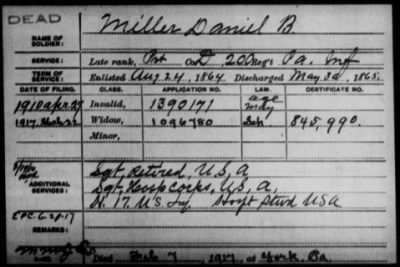 DEAD
Miller Daniel B.
NAME OF SOLDIER:
SERVICE: Late rank, Pvt Co. D, 200 Reg't Pa. Inf
TERM OF SERVICE: Enlisted Aug 24, 1864, Discharged May 30, 1865.
DATE OF FILING. CLASS. APPLICATION NO. LAW. CERTIFICATE NO.
1910 Apr 27 Invalid, 1390171 age
1917 Widow, 1096780 845,990.
Minor,
ADDITIONAL SERVICES: Sgt, Retired, U.S, A
Sgt, Hosp corps, U.S, A,
H. 17. U.S Inf. Hospt Stwd USA
REMARKS:
Died Feb 7, 1917, at York, Pa.